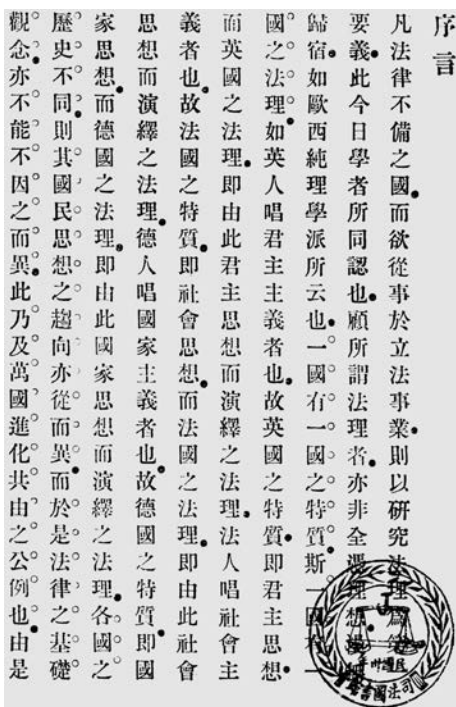 序言
凡法律不備之國而欲從事於立法事業則以研究法理爲第
要義此今日學者所同認也顧所謂法理者亦非全憑理想
歸宿如歐西純理學派所云也一國有一國之特質斯一國有一
國之法理如英人唱君主主義者也故英國之特質即君主思想
而英國之法理即由此君主思想而演繹之法理法人唱社會主
義者也故法國之特質即社會思想而法國之法理即由此社會
思想而演繹之法理德人唱國家主義者也故德國之特質即國
家思想而德國之法理即由此國家思想而演繹之法理各國之
歷史不同則其國民思想之趨向亦從而異而於是法律之基礎
觀念亦不能不因之而異此乃及萬國進化共由之公例也由是